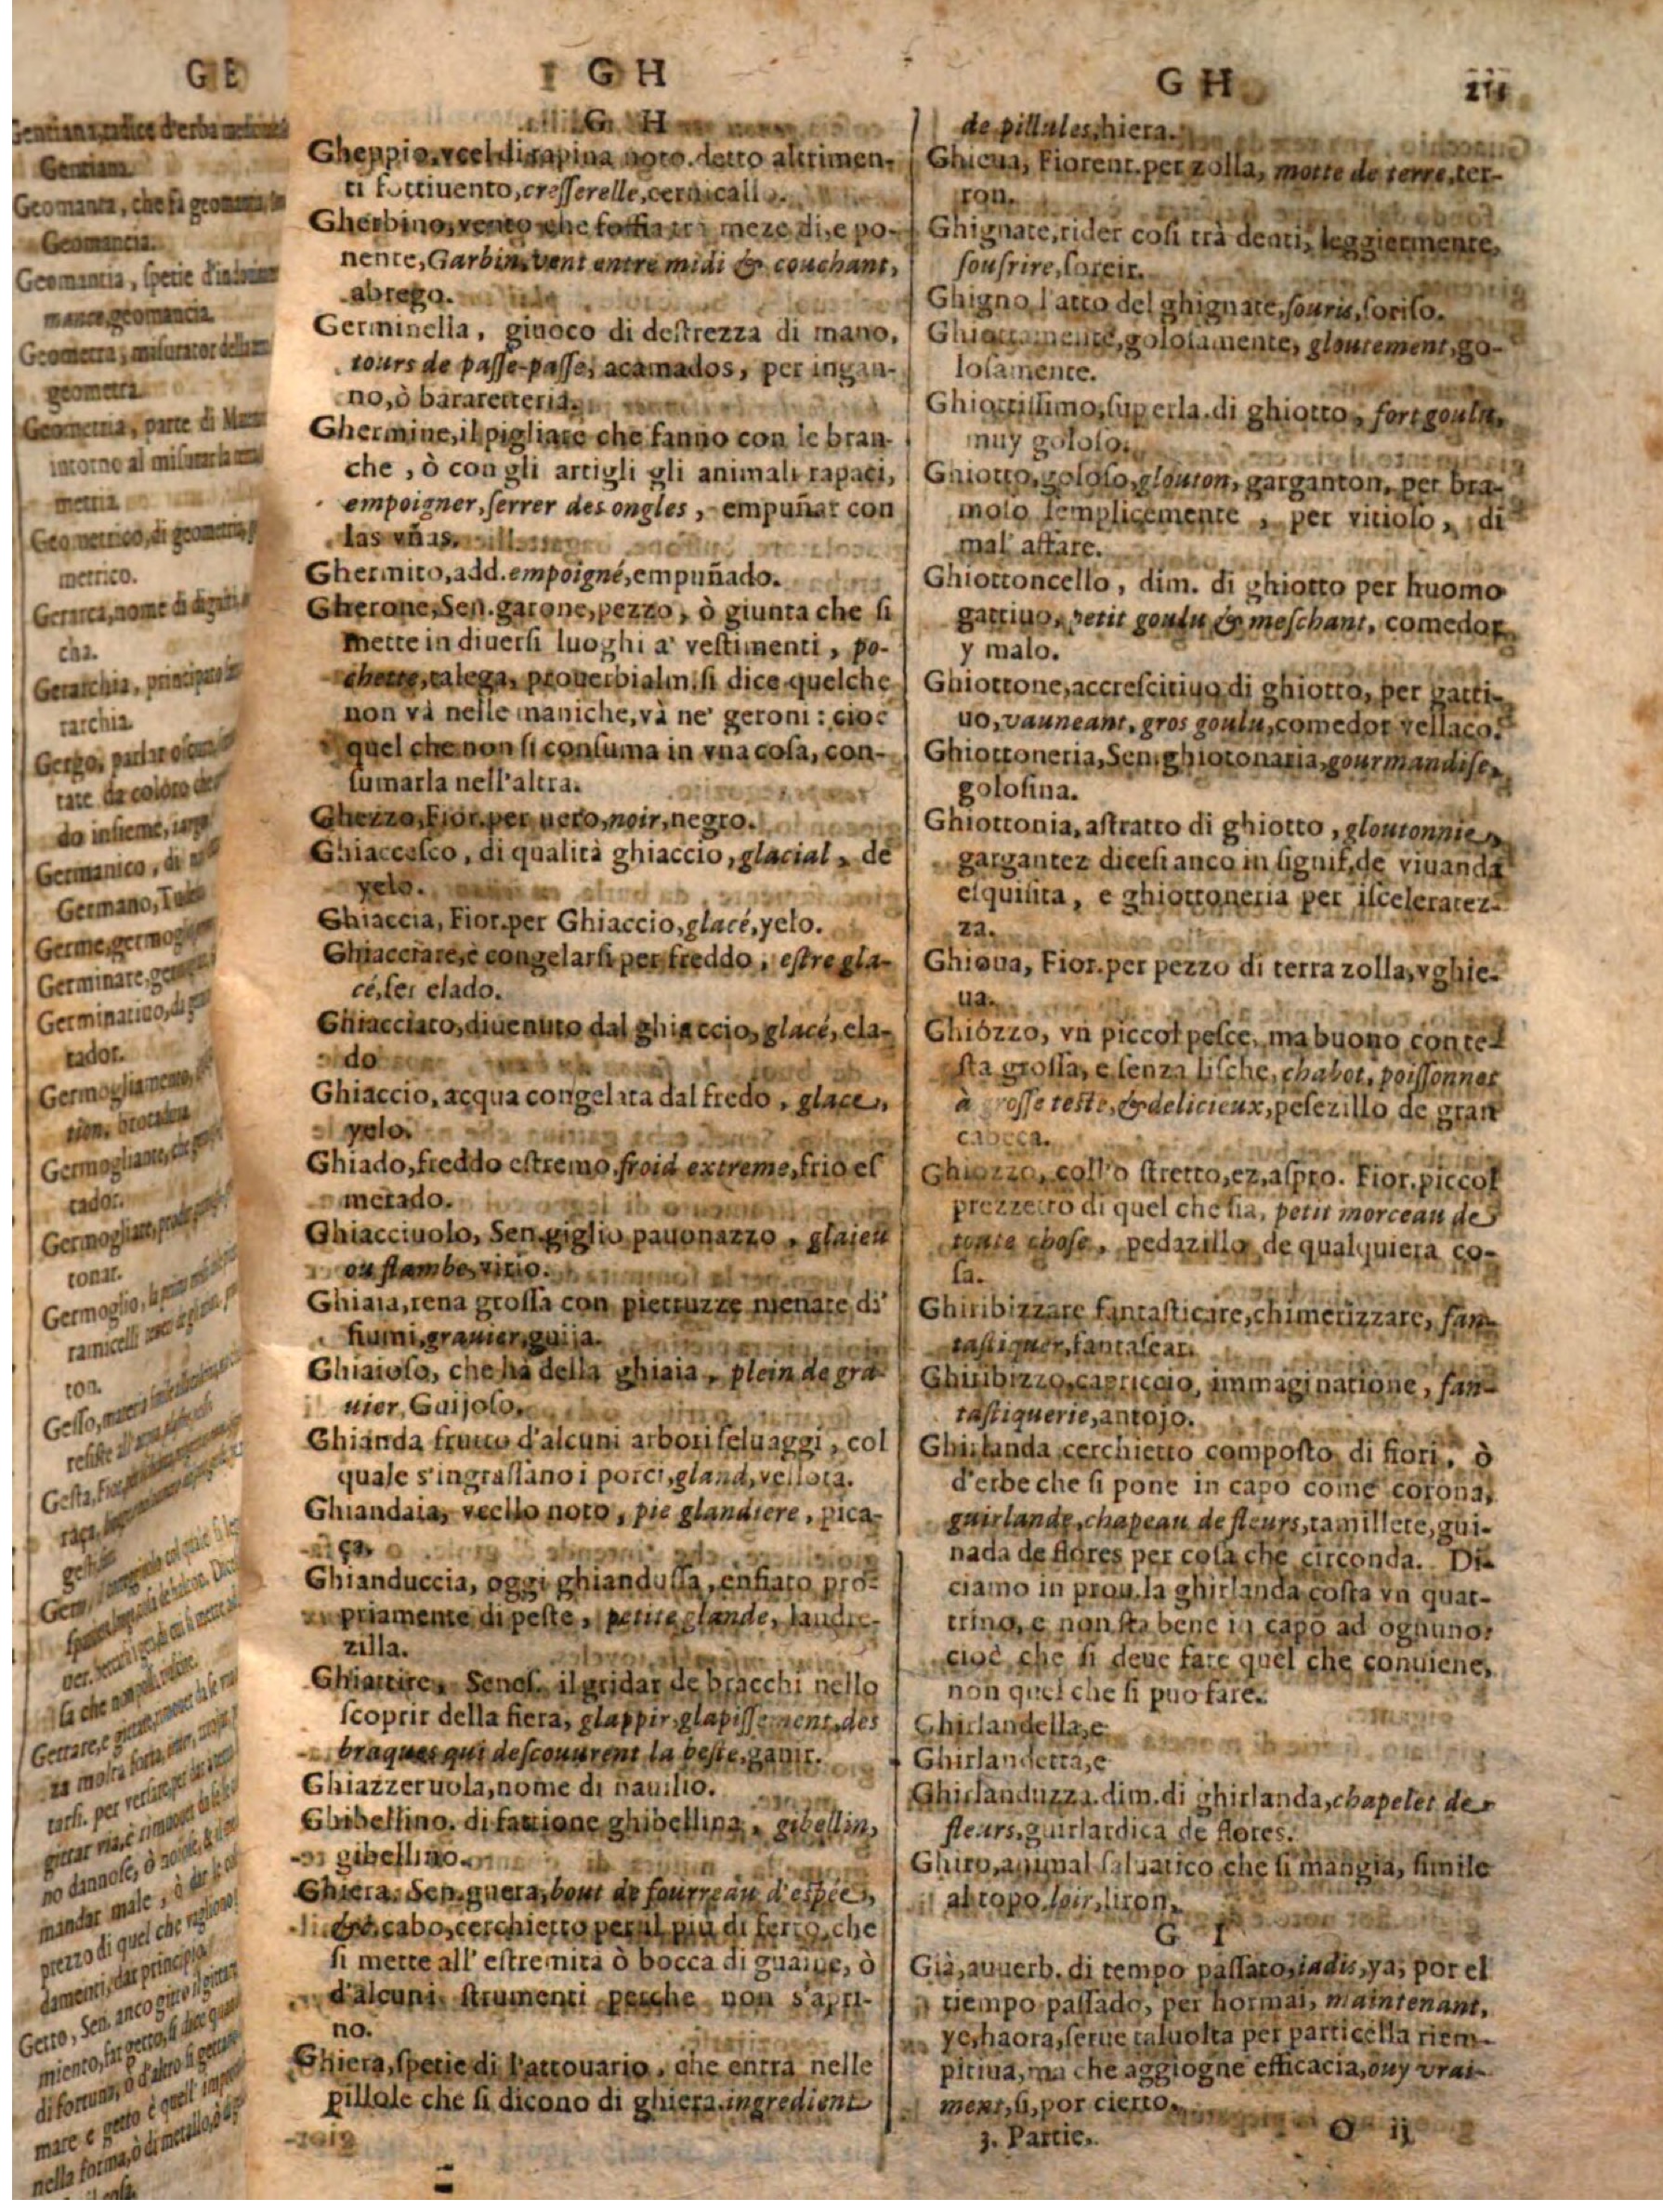 G E
Geomanta, che fa
Geomancia.
Geomantia, spetie
geomancia
Geometra, misurator
geometra.
parte di
metria
di geometria
metrico.
Gerarca, nome di
cha.
Gerarchia, principato
rarchia
Gergo, parlar
tate da coloro
do insieme,
Germanico, di
Germano,
Germe, germoglio
Germinare,
Germinatiuo,
tador.
Germogliamento,
Germogliante,
tador.
Germogliare,
tonar.
Germoglio,
ramicelli
ton.
Gesso,
Gesta,
Gettare, e gittare,
za molta forza,
tarsi. per versare,
gittar via, è
no dannose, ò
mandar male, ò dar
prezzo di quel che vagliono
damenti, dar principio
Getto, Sen. anco gitto il gittare
miento, far getto, si dice
di fortuna, ò d'altro si
mare e getto è quell'
nella forma, ò di metallo, ò di
G H
G H
Gheppio, vcel di rapina noto. detto altrimen-
ti fottiuento, cresserelle, cernicallo.
Gherbino, vento che soffia trà meze di, e po-
nente, Garbin, vent entre midi & couchant,
abrego.
Germinella, giuoco di destrezza di mano,
tours de passe-passe, acamados, per ingan-
no, ò bararetteria.
Ghermine, il pigliare che fanno con le bran-
che, ò con gli artigli gli animali rapaci,
empoigner, serrer des ongles, empuñar con
las vñas.
Ghermito, add. empoigné, empuñado.
Gherone, Sen. garone, pezzo, ò giunta che si
mette in diuersi luoghi a' vestimenti, po-
chette, talega, prouerbialm. si dice quelche
non và nelle maniche, và ne' geroni: cioè
quel che non si consuma in vna cosa, con-
sumarla nell'altra.
Ghezzo, Fior. per nero, noir, negro.
Ghiaccesco, di qualità ghiaccio, glacial, de
yelo.
Ghiaccia, Fior. per Ghiaccio, glacé, yelo.
Ghiacciare, è congelarsi per freddo, estre gla-
cé, ser elado.
Ghiacciato, diuenuto dal ghiaccio, glacé, ela-
do
Ghiaccio, acqua congelata dal fredo, glace,
yelo.
Ghiado, freddo estremo, froid extreme, frio es
metado.
Ghiacciuolo, Sen. giglio pauonazzo, glaieu
ou flambe, virio.
Ghiaia, rena grossa con pietruzze menate di'
fiumi, grauier, guija.
Ghiaioso, che ha della ghiaia, plein de gra-
uier, Guijoso.
Ghianda frutto d'alcuni arbori seluaggi, col
quale s'ingrassano i porci, gland, vellota.
Ghiandaia, vcello noto, pie glandiere, pica-
ça.
Ghianduccia, oggi ghiandussa, enfiato pro-
priamente di peste, petite glande, landre-
zilla.
Ghiattire, Senes. il gridar de bracchi nello
scoprir della fiera, glappir, glapissement, des
braques qui descouurent la beste, ganir.
Ghiazzeruola, nome di nauilio.
Ghibellino. di fattione ghibellina, gibellin,
gibellino.
Ghiera, Sen. guera, bout de fourreau d'espée,
&c. cabo, cerchietto per il più di ferro, che
si mette all' estremita ò bocca di guaine, ò
d'alcuni strumenti perche non s'apri-
no.
Ghiera, spetie di lattouario, che entra nelle
pillole che si dicono di ghiera. ingredient
G H
iii
de pillules, hiera.
Ghieua, Fiorent. per zolla, motte de terre, ter-
ron.
Ghignate, rider cosi trà denti, leggiermente,
sousrire, soreir.
Ghigno l'atto del ghignate, souris, soriso.
Ghiottamente, golosamente, gloutement, go-
losamente.
Ghiottissimo, superla. di ghiotto, fort goulu,
muy goloso.
Ghiotto, goloso, glouton, garganton, per bra-
moso semplicemente, per vitioso, di
mal' affare.
Ghiottoncello, dim. di ghiotto per huomo
gattiuo, petit goulu & meschant, comedor
y malo.
Ghiottone, accrescitiuo di ghiotto, per gatti-
uo, vauneant, gros goulu, comedor vellaco.
Ghiottoneria, Sen. ghiotonaria, gourmandise,
golosina.
Ghiottonia, astratto di ghiotto, gloutonnie,
gargantez dicesi anco in signif. de viuanda
esquisita, e ghiottoneria per isceleratez-
za.
Ghioua, Fior. per pezzo di terra zolla, vghie-
ua.
Ghiózzo, vn piccol pesce, ma buono con te-
sta grossa, e senza lische, chabot, poissonnet
à grosse teste, & delicieux, pesezillo de gran
cabeca.
Ghiozzo, coll'o stretto, ez, aspro. Fior. piccol
prezzetto di quel che sia, petit morceau de
toute chose, pedazillo de qualquiera co-
sa.
Ghiribizzare fantasticare, chimerizzare, fan-
tastiquer, fantasear.
Ghiribizzo, capriccio, immaginatione, fan-
tastiquerie, antojo.
Ghirlanda cerchietto composto di fiori, ò
d'erbe che si pone in capo come corona,
guirlande, chapeau de fleurs, ramillete, gui-
nada de flores per cosa che circonda. Di-
ciamo in prou. la ghirlanda costa vn quat-
trino, e non sta bene in capo ad ognuno:
cioè che si deue fare quel che conuiene,
non quel che si puo fare.
Ghirlandella, e
Ghirlandetta, e
Ghirlanduzza. dim. di ghirlanda, chapelet de
fleurs, guirlardica de flores.
Ghiro, animal saluatico che si mangia, simile
al topo, loir, liron.
G I
Già, auuerb. di tempo passato, iadis, ya, por el
tiempo passado, per hormai, maintenant,
ye, haora, serue taluolta per particella riem-
pitiua, ma che aggiogne efficacia, ouy vrai-
ment, si, por cierto.
3. Partie. O ij